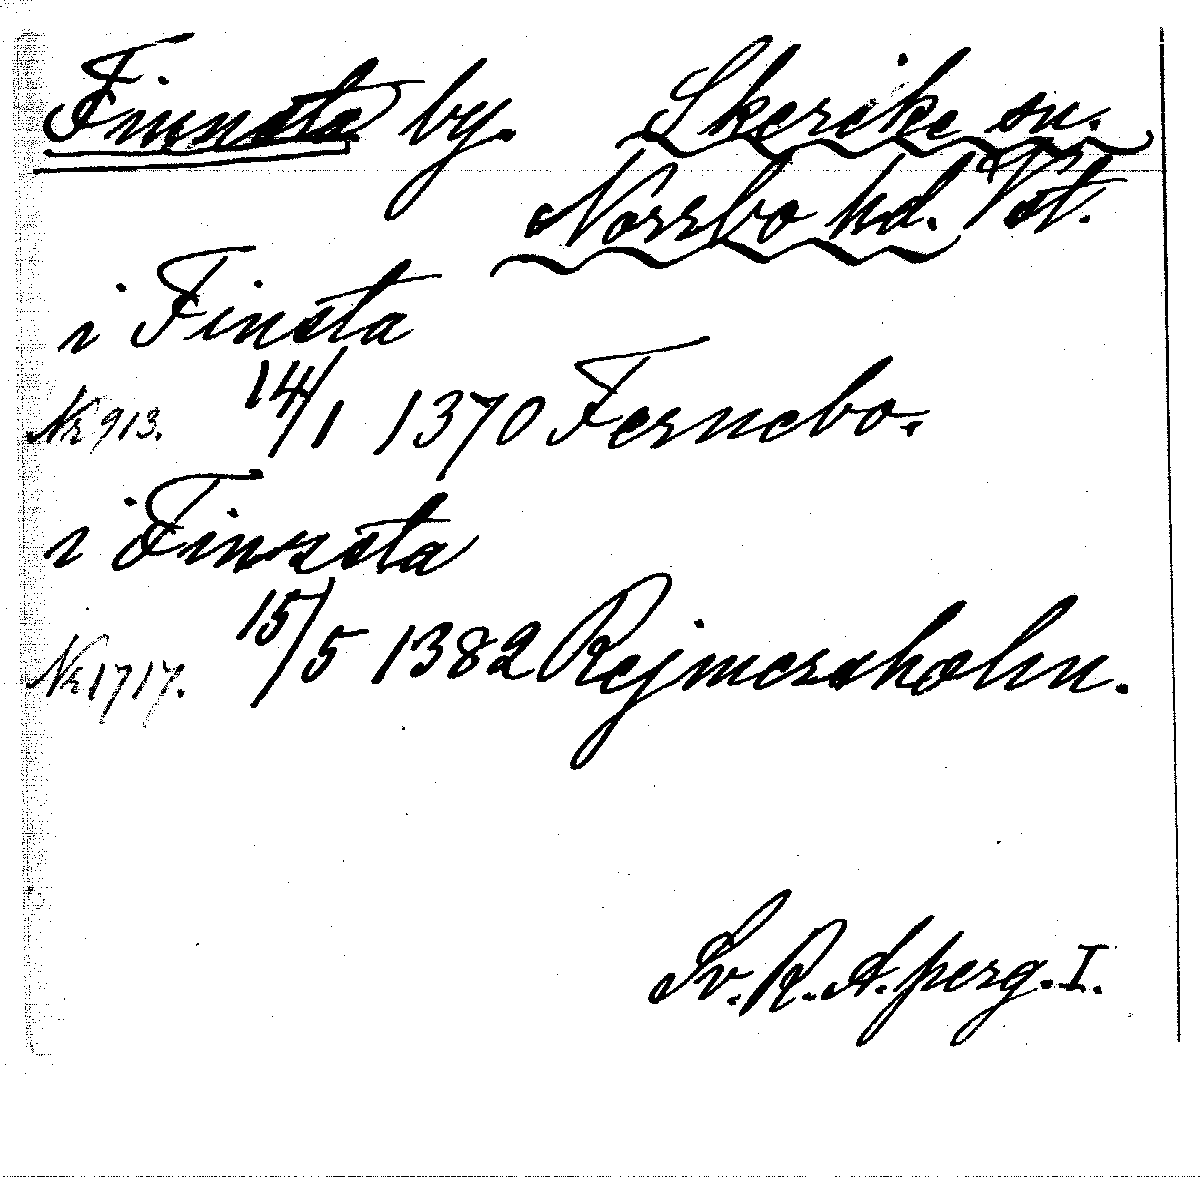 Finnsta by. Skerike sn.
Norrbo hd. Vst.
i Finsta
Nr 913. 14/1 1370 Fernebo.
i Finszsta
Nr 1717. 15/5 1382 Rejmersholm.
Sv. R. A. perg. I.